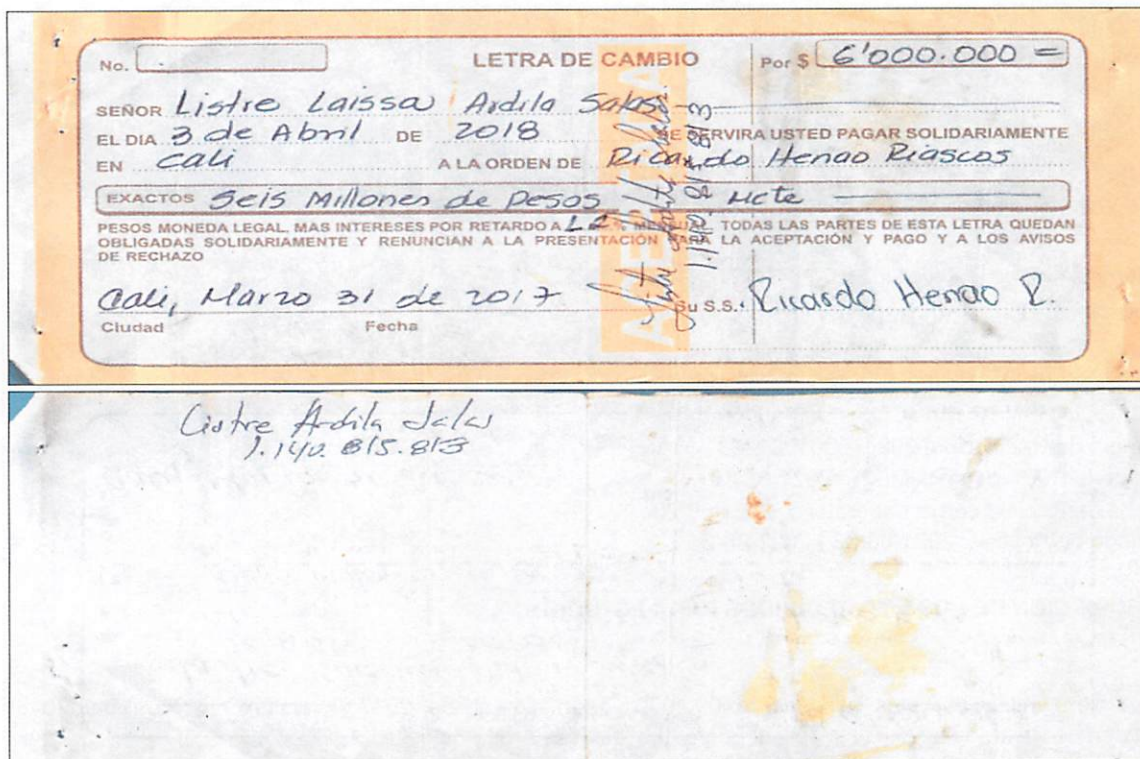 No. LETRA DE CAMBIO Por $ 6'000.000 =
SEÑOR Listre Laissa Ardila Salas
EL DIA 3 de Abril DE 2018 SE SERVIRA USTED PAGAR SOLIDARIAMENTE
EN Cali A LA ORDEN DE Ricardo Henao Riascos
EXACTOS Seis Millones de Pesos Mcte
PESOS MONEDA LEGAL, MAS INTERESES POR RETARDO A TODAS LAS PARTES DE ESTA LETRA QUEDAN
OBLIGADAS SOLIDARIAMENTE Y RENUNCIAN A LA PRESENTACIÓN PARA LA ACEPTACIÓN Y PAGO Y A LOS AVISOS
DE RECHAZO
Cali, Marzo 31 de 2017 Su S.S. Ricardo Henao R.
Ciudad Fecha
ACEPTADA
Listre Ardila Salas
1.140.815.813
Listre Ardila Salas
1.140.815.813